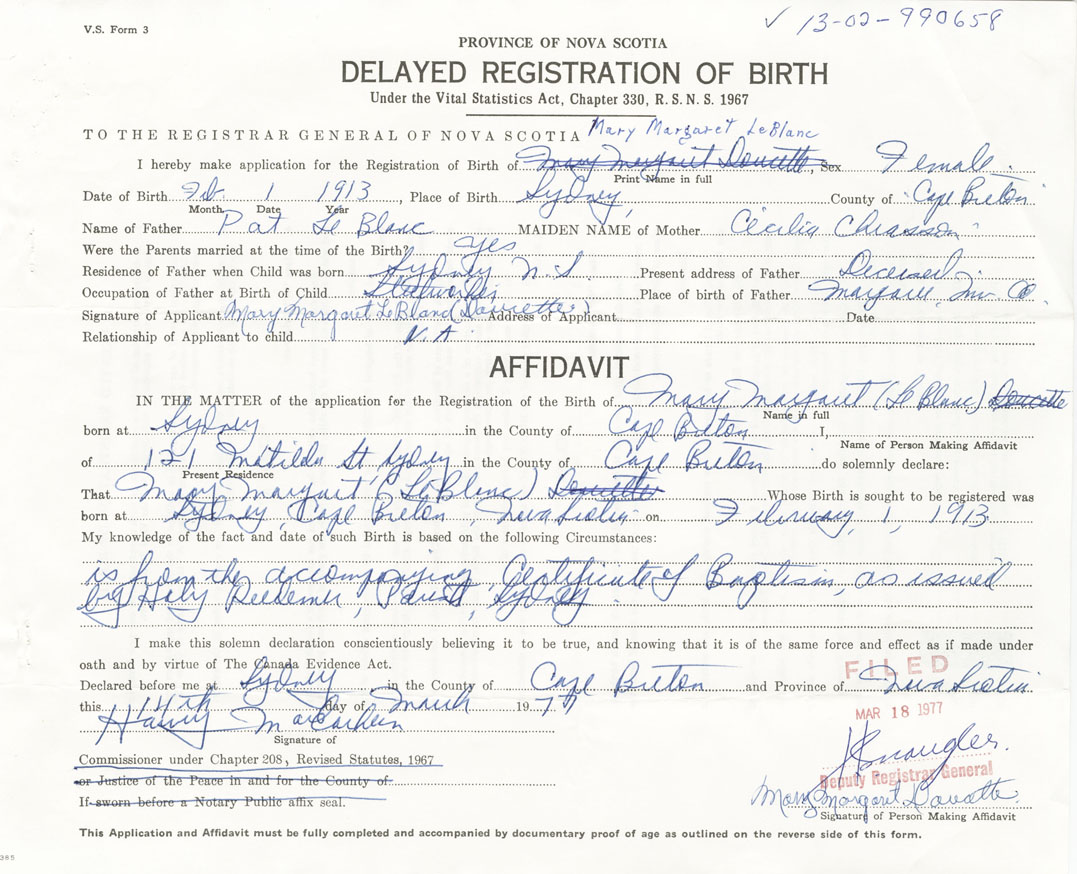 V.S. Form 3
✓ 13-02-990658
PROVINCE OF NOVA SCOTIA
DELAYED REGISTRATION OF BIRTH
Under the Vital Statistics Act, Chapter 330, R. S. N. S. 1967
TO THE REGISTRAR GENERAL OF NOVA SCOTIA Mary Margaret LeBlanc
I hereby make application for the Registration of Birth of Mary Margaret Doucette, Sex Female
Print Name in full
Date of Birth Feb. 1 1913, Place of Birth Sydney, County of Cape Breton
Month Date Year
Name of Father Pat Le Blanc MAIDEN NAME of Mother Cecilia Chiasson
Were the Parents married at the time of the Birth? yes
Residence of Father when Child was born Sydney N.S. Present address of Father Deceased
Occupation of Father at Birth of Child Steelworker Place of birth of Father Margaree, Inv. Co.
Signature of Applicant Mary Margaret LeBlanc (Doucette) Address of Applicant Date
Relationship of Applicant to child N.A
AFFIDAVIT
IN THE MATTER of the application for the Registration of the Birth of Mary Margaret (Le Blanc) Doucette
Name in full
born at Sydney in the County of Cape Breton I,
Name of Person Making Affidavit
of 121 Matilda St, Sydney in the County of Cape Breton do solemnly declare:
Present Residence
That Mary Margaret (LeBlanc) Doucette Whose Birth is sought to be registered was
born at Sydney, Cape Breton, Nova Scotia on February, 1, 1913
My knowledge of the fact and date of such Birth is based on the following Circumstances:
is from the accompanying Certificate of Baptism, as issued
by Holy Redeemer, Parish, Sydney.
I make this solemn declaration conscientiously believing it to be true, and knowing that it is of the same force and effect as if made under
oath and by virtue of The Canada Evidence Act.
FILED
Declared before me at Sydney in the County of Cape Breton and Province of Nova Scotia
this 14th day of March 1977
MAR 18 1977
Harvey
Signature of
Commissioner under Chapter 208, Revised Statutes, 1967
or Justice of the Peace in and for the County of
Deputy Registrar General
If sworn before a Notary Public affix seal.
Mary Margaret Doucette
Signature of Person Making Affidavit
This Application and Affidavit must be fully completed and accompanied by documentary proof of age as outlined on the reverse side of this form.
385